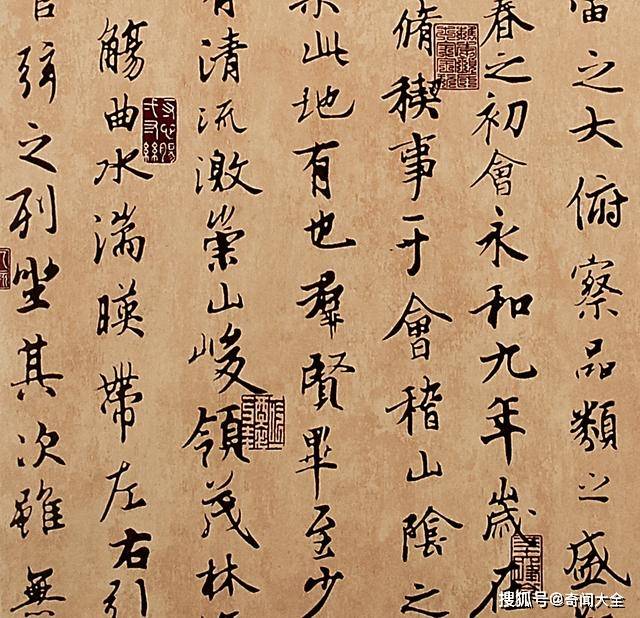 之大俯察品類之盛
春之初會永和九年歲在
脩稧事于會稽山陰之
此地有也羣賢畢至少
有清流激崇山峻領茂林
觴曲水湍暎帶左右引
弦之列坐其次雖無
搜狐号@奇闻大全